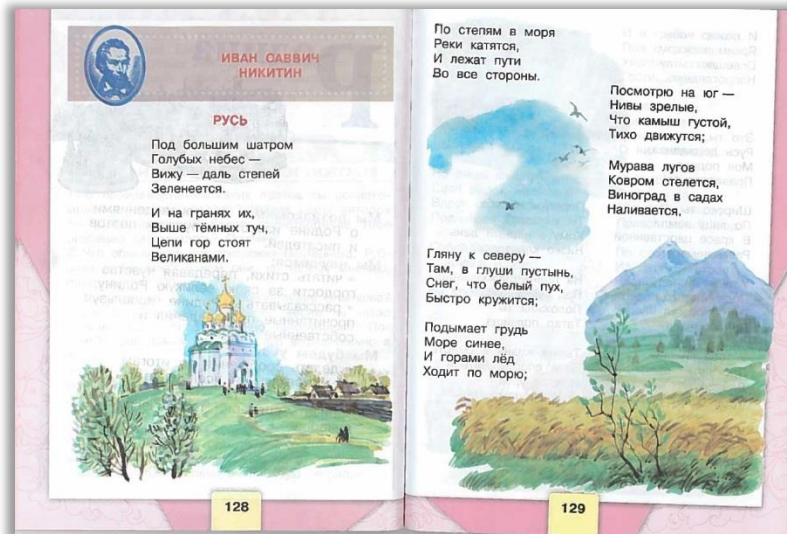 ИВАН САВВИЧ
НИКИТИН
РУСЬ
Под большим шатром
Голубых небес —
Вижу — даль степей
Зеленеется.
И на гранях их,
Выше тёмных туч,
Цепи гор стоят
Великанами.
128
По степям в моря
Реки катятся,
И лежат пути
Во все стороны.
Посмотрю на юг —
Нивы зрелые,
Что камыш густой,
Тихо движутся;
Мурава лугов
Ковром стелется,
Виноград в садах
Наливается.
Гляну к северу —
Там, в глуши пустынь,
Снег, что белый пух,
Быстро кружится;
Подымает грудь
Море синее,
И горами лёд
Ходит по морю;
129